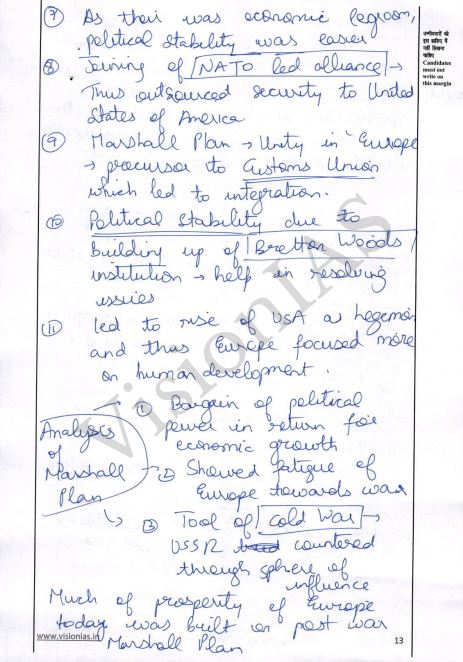 ⑦ As their was economic legroom,
political stability was easier
⑧ Joining of NATO led alliance →
Thus outsourced security to United
States of America
⑨ Marshall Plan → Unity in Europe
→ precursor to Customs Union
which led to integration.
⑩ Political Stability due to
building up of Bretton Woods
institution → help in resolving
issues
⑪ led to rise of USA as hegemon
and thus Europe focused more
on human development.
Analysis
of
Marshall
Plan
→ ① Bargain of political
power in return for
economic growth
→ ② Showed fatigue of
Europe towards war
↳ ③ Tool of cold War →
USSR countered
through sphere of
influence
Much of prosperity of Europe
today was built on post war
Marshall Plan
उम्मीदवारों को
इस हाशिए में
नहीं लिखना
चाहिए
Candidates
must not
write on
this margin
VisionIAS
www.visionias.in
13